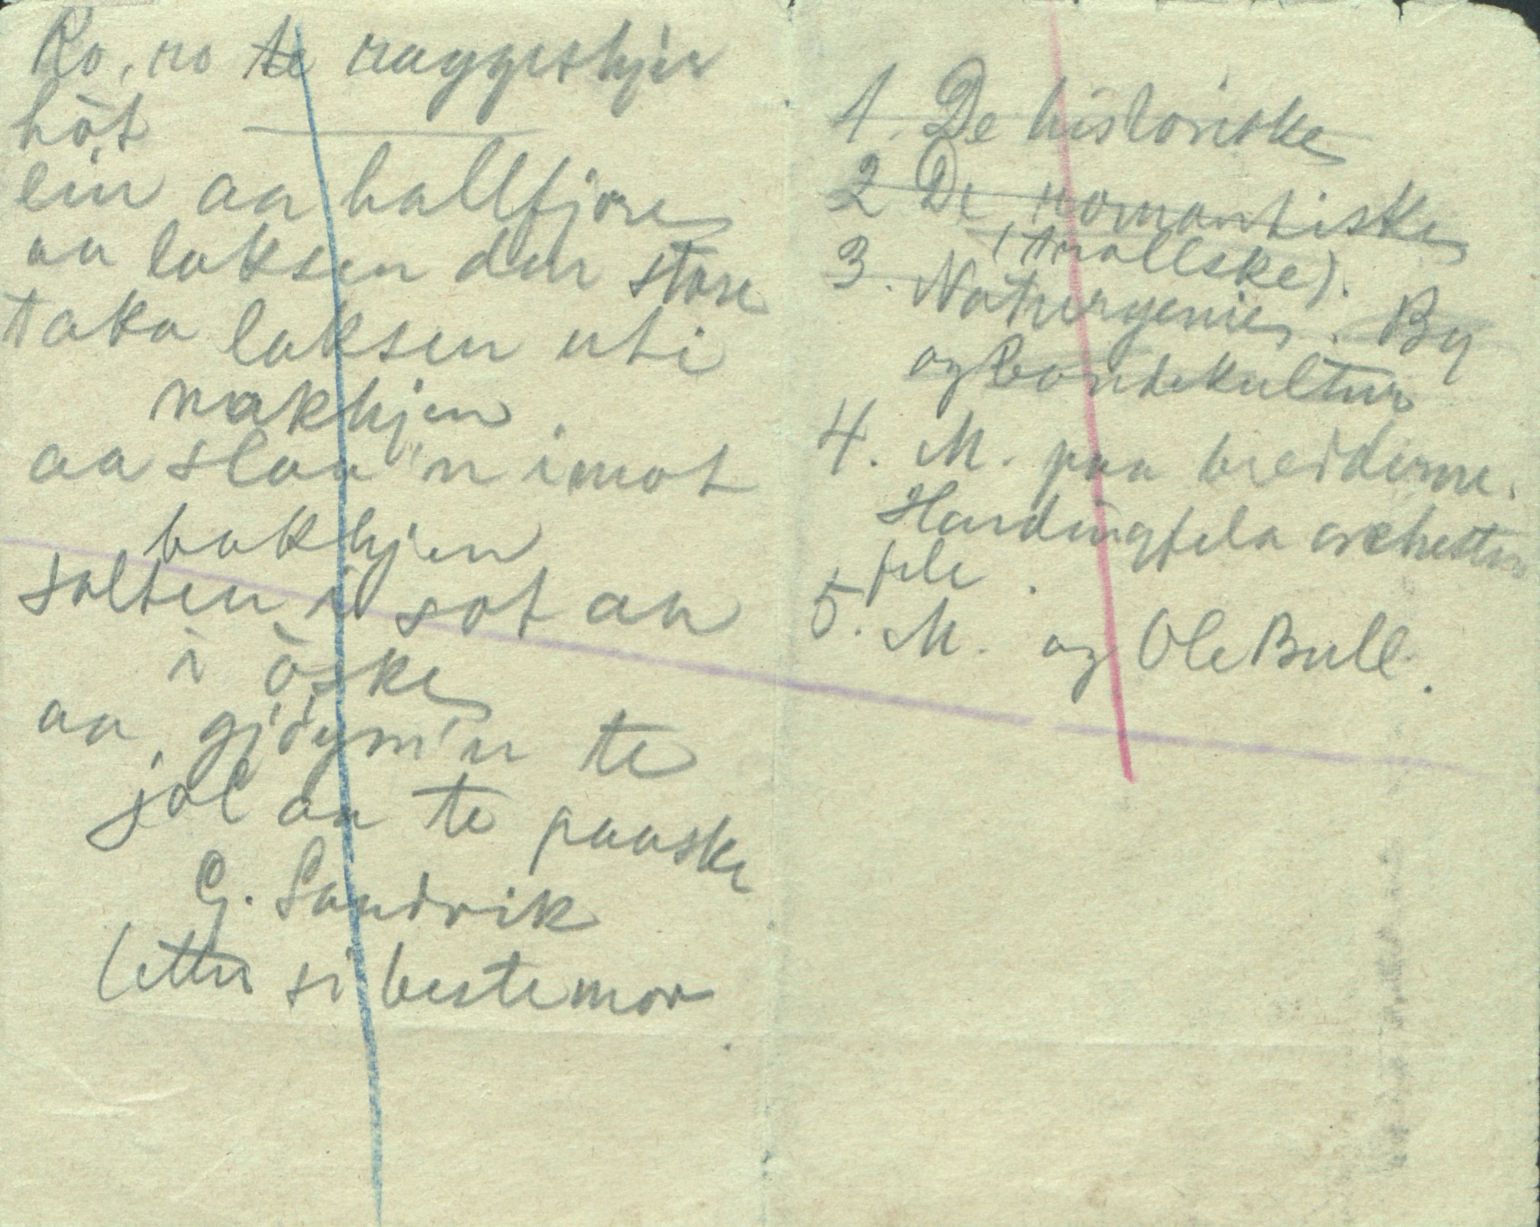 Ro, ro te raggeskjer
hòt
ein aa hallfjore
aa laksen den store
taka laksen uti
nakkjen
aa slaa'n imot
bakkjen
salten i sot aa
i òske
aa, gjøym'n te
jol aa te paaske
G. Sandvik
(etter si bestemor
1. De historiske
2 De romantiske
(trollske).
3. Naturgenie. By
og bondekultur
4. M. paa bredderne.
Hardingfela orchester
fele.
5. M. og Ole Bull.